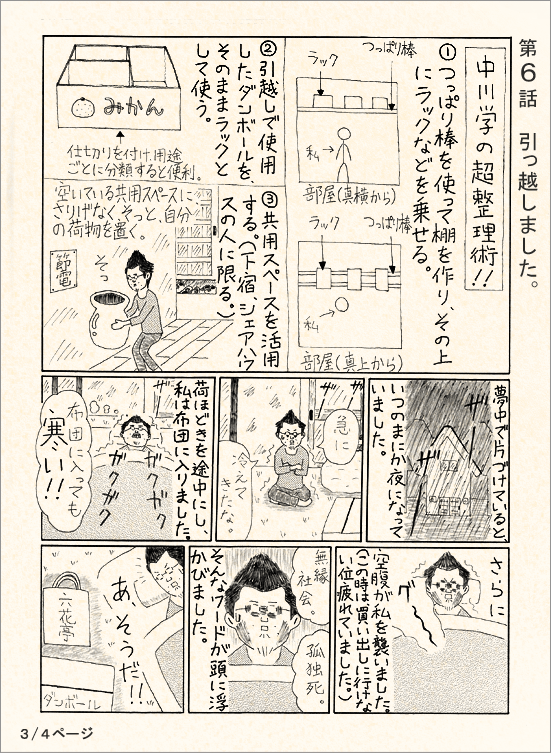 第6話 引っ越しました。
中川学の超整理術!!
①つっぱり棒を使って棚を作り、その上
にラックなどを乗せる。
つっぱり棒
ラック
私→
部屋(真横から)
つっぱり棒
ラック
私→
部屋(真上から)
②引越しで使用
したダンボールを、
そのままラックと
して使う。
みかん
仕切りを付け、用途
ごとに分類すると便利。
③共用スペースを活用
する。(下宿、シェアハウ
スの人に限る。)
空いている共用スペースに
さりげなくそっと、自分
の荷物を置く。
節電
そっ
夢中で片づけていると、
いつのまにか夜になって
いました。
ザー
ザー
ザー
急に
冷えて
きたな。
荷ほどきを途中にし、
私は布団に入りました。
ガクガク
ガクガク
布団に入っても
寒い!!
さらに
空腹が私を襲いました。
(この時は買い出しに行けな
い位疲れていました。)
グ〜
無縁
社会。
孤独死。
そんなワードが頭に浮
かびました。
あ、そうだ!!
六花亭
ダンボール
3/4ページ